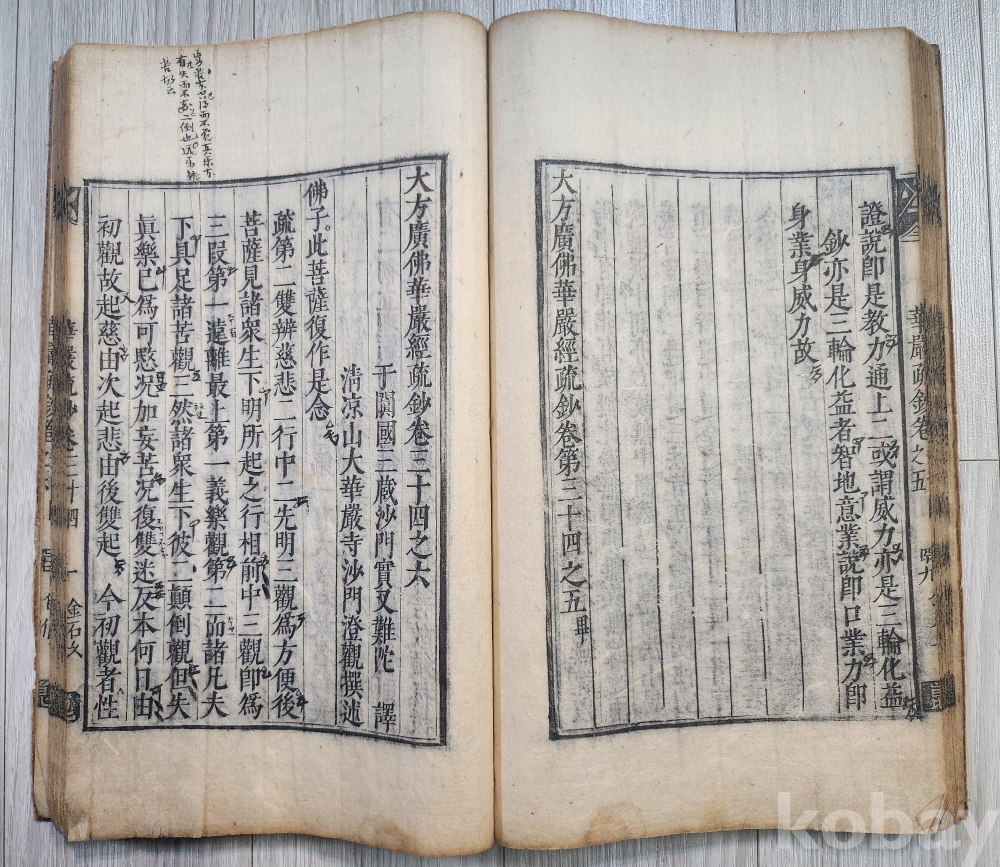 證說即是教力通上二或謂威力亦是三輪化益
鈔亦是三輪化益者智地意業說即口業力即
身業身威力故
大方廣佛華嚴經疏鈔卷第三十四之五 畢
華嚴疏鈔卷
之五
大方廣佛華嚴經疏鈔卷三十四之六
于闐國三藏沙門實叉難陀 譯
清凉山大華嚴寺沙門澄觀撰述
佛子此菩薩復作是念
疏第二雙辨慈悲二行中二先明三觀爲方便後
菩薩見諸衆生下明所起之行相前中三觀即爲
三段第一遠離最上第一義樂觀第二而諸凡夫
下具足諸苦觀三然諸衆生下彼二顛倒觀但失
眞樂已爲可愍况加妄苦况復雙迷反本何日由
初觀故起慈由次起悲由後雙起 今初觀者性
華嚴疏鈔卷三十四
一
金石文
kobay